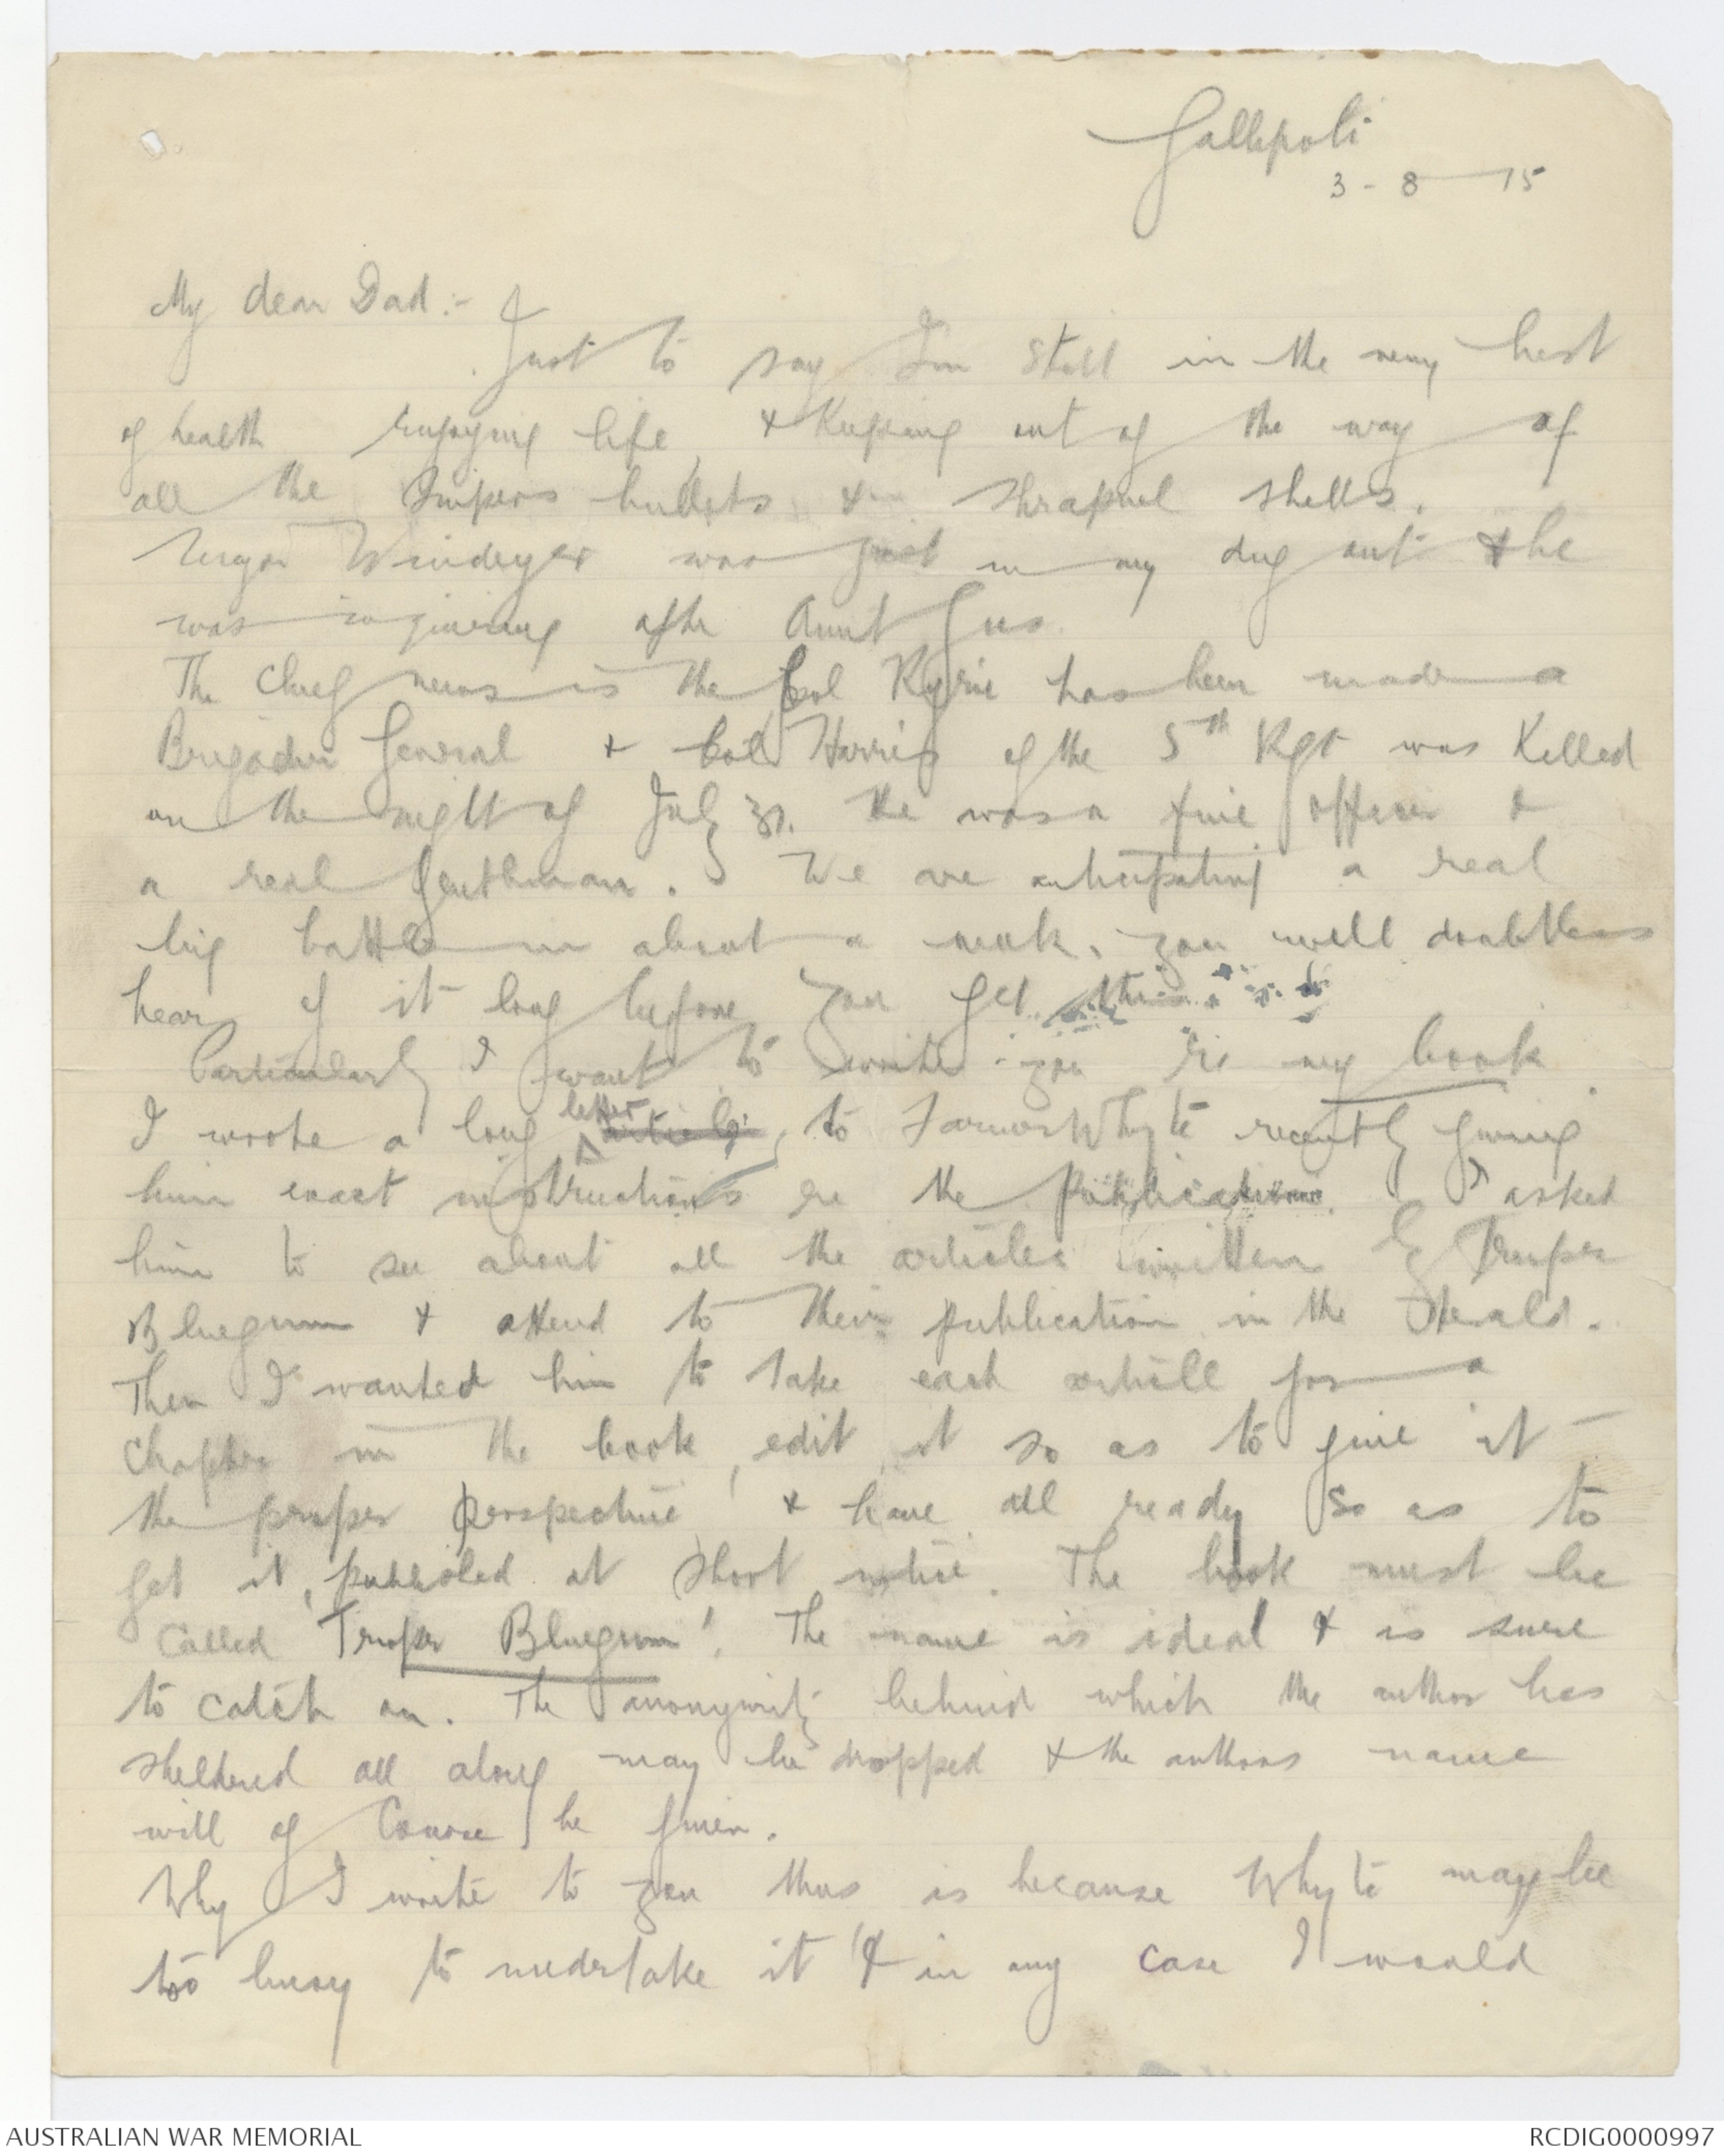 Gallipoli
3-8-15
My dear Dad:-
Just to say I'm still in the very best
of health enjoying life, & keeping out of the way of
all the Snipers bullets & shrapnel shells.
Major Windeyer was just in my dug out & he
was inquiring after Aunt Gus.
The chief news is the Col Ryrie has been made a
Brigadier General & Col Harris of the 5th Rgt was killed
on the night of July 31. He was a fine officer &
a real gentleman. We are anticipating a real
big battle in about a week. You will doubtless
hear of it long before you get this.
Particularly I want to write you re my book
I wrote a long letter to Farmer Whyte recently giving
him exact instructions re the publication. I asked
him to see about all the articles written by Trooper
Bluegum & attend to their publication in the Herald.
Then I wanted him to take each article for a
chapter in the book, edit it so as to give it
the proper perspective & have all ready so as to
get it published at short notice. The book must be
called 'Trooper Bluegum'. The name is ideal & is sure
to catch on. The anonymity behind which the author has
sheltered all along may be dropped & the authors name
will of course be given.
Why I write to you thus is because Whyte may be
too busy to undertake it & in any case I would
AUSTRALIAN WAR MEMORIAL
RCDIG0000997